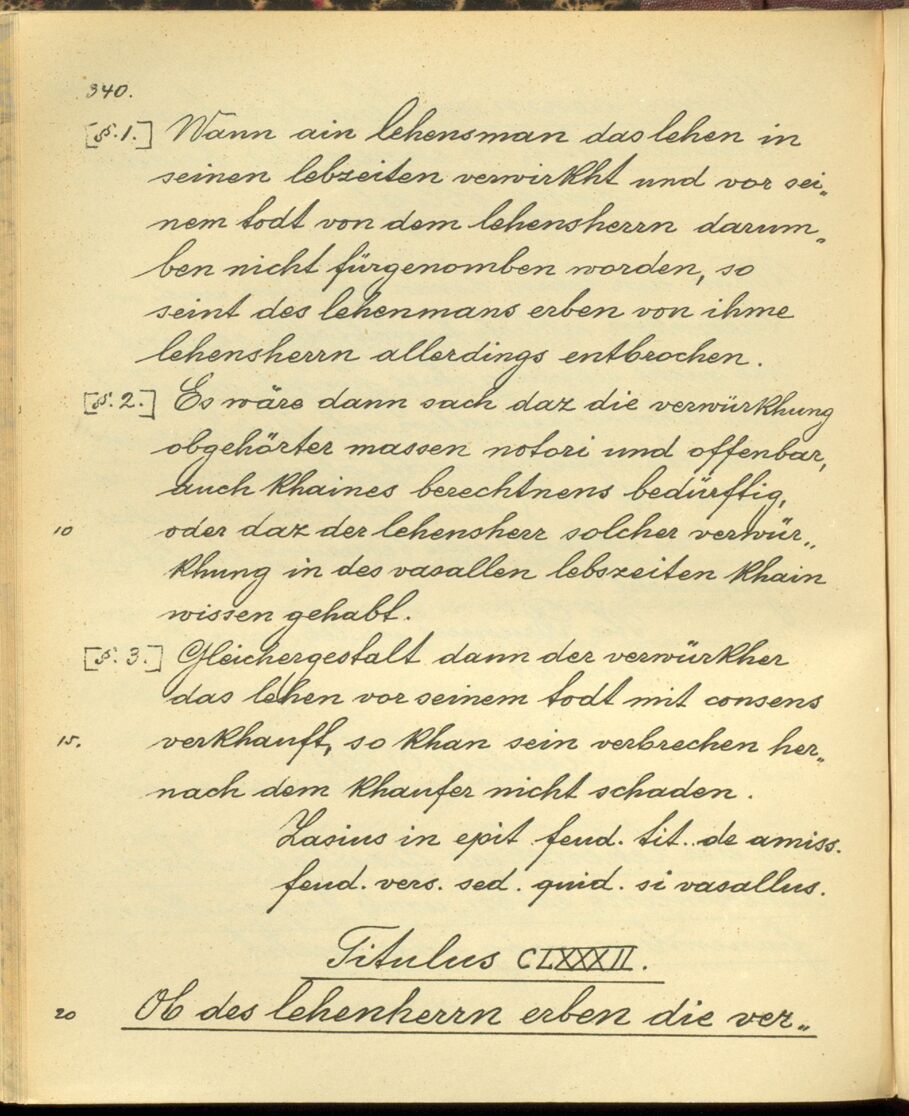 340.
[§. 1.] Wann ain lehensman das lehen in
seinen lebzeiten verwirkht und vor sei„
nem todt von dem lehensherrn darum„
ben nicht fürgenomben worden, so
seint des lehenmans erben von ihme
lehensherrn allerdings entbrochen.
[§. 2.] Es wäre dann sach daz die verwürkhung
obgehörter massen notori und offenbar,
auch khaines berechtnens bedürfftig,
10 oder daz der lehensherr solcher verwür„
khung in des vasallen lebszeiten khain
wissen gehabt.
[§. 3.] Gleichergestalt dann der verwürkher
das lehen vor seinem todt mit consens
15. verkhaufft, so khan sein verbrechen her„
nach dem khaufer nicht schaden.
Zasius in epit feud. tit. de amiss.
feud. vers. sed. quid. si vasallus.
Titulus CLXXXII.
20 Ob des lehenherrn erben die ver„